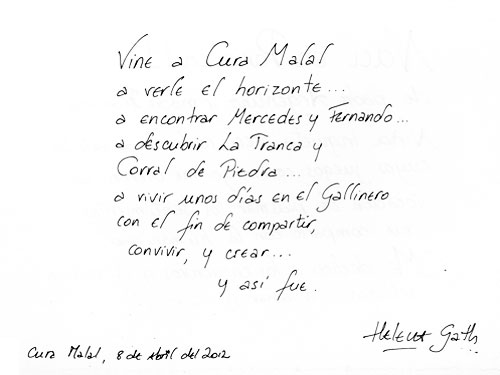 Vine a Cura Malal
a verle el horizonte...
a encontrar Mercedes y Fernando...
a descubrir La Tranca y
Corral de Piedra...
a vivir unos días en el Gallinero
con el fin de compartir,
convivir, y crear...
y así fue.
Gath
Cura Malal, 8 de Abril del 2012